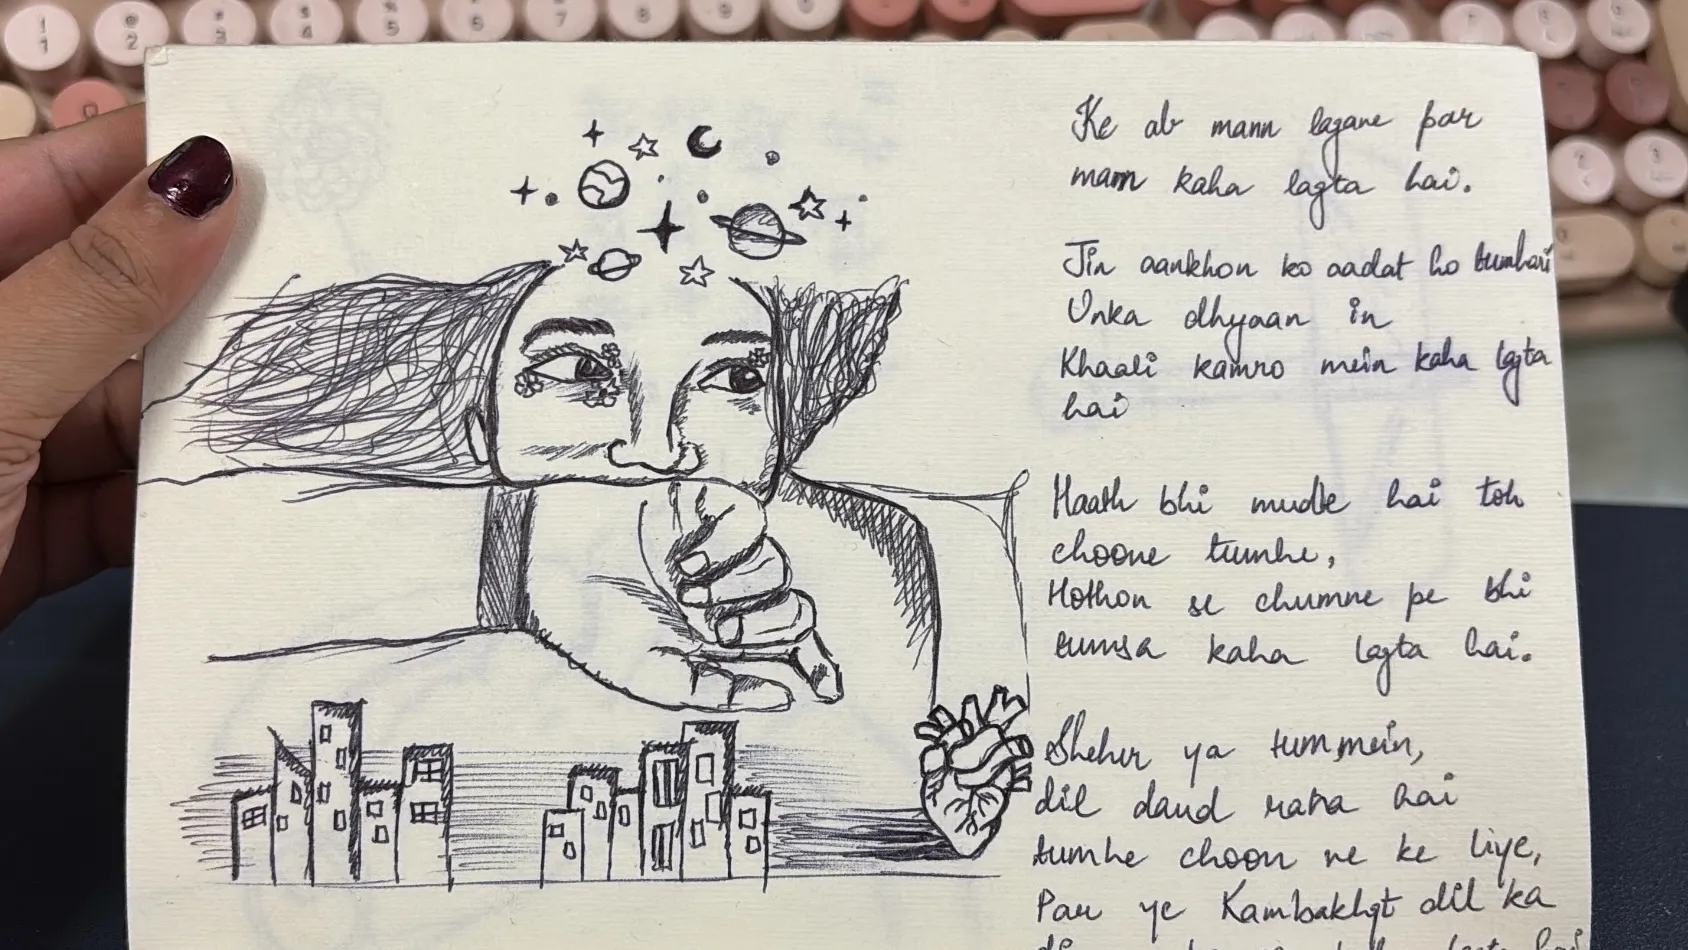 Ke ab mann lagane par
mann kaha lagta hai.
Jin aankhon ko aadat ho tumhari
Unka dhyaan in
Khaali kamro mein kaha lagta
hai
Haath bhi mudte hai toh
choone tumhe,
Hothon se chumne pe bhi
tumsa kaha lagta hai.
Sheher ya tum mein,
dil daud raha hai
tumhe choon ne ke liye,
Par ye Kambakhqt dil ka
kaha lagta hai